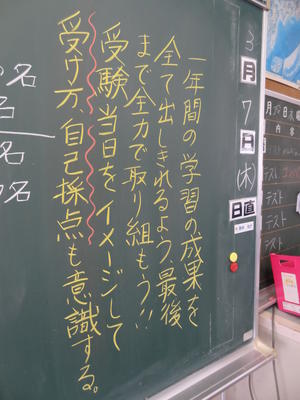 一年間の学習の成果を
全て出しきれるよう、最後
まで全力で取り組もう!!
受験当日をイメージして
受け方、自己採点も意識する。
3
月
7
日
(木)
日直
名
名
名
月 日 木曜
内容
テスト
テスト
テスト
テスト